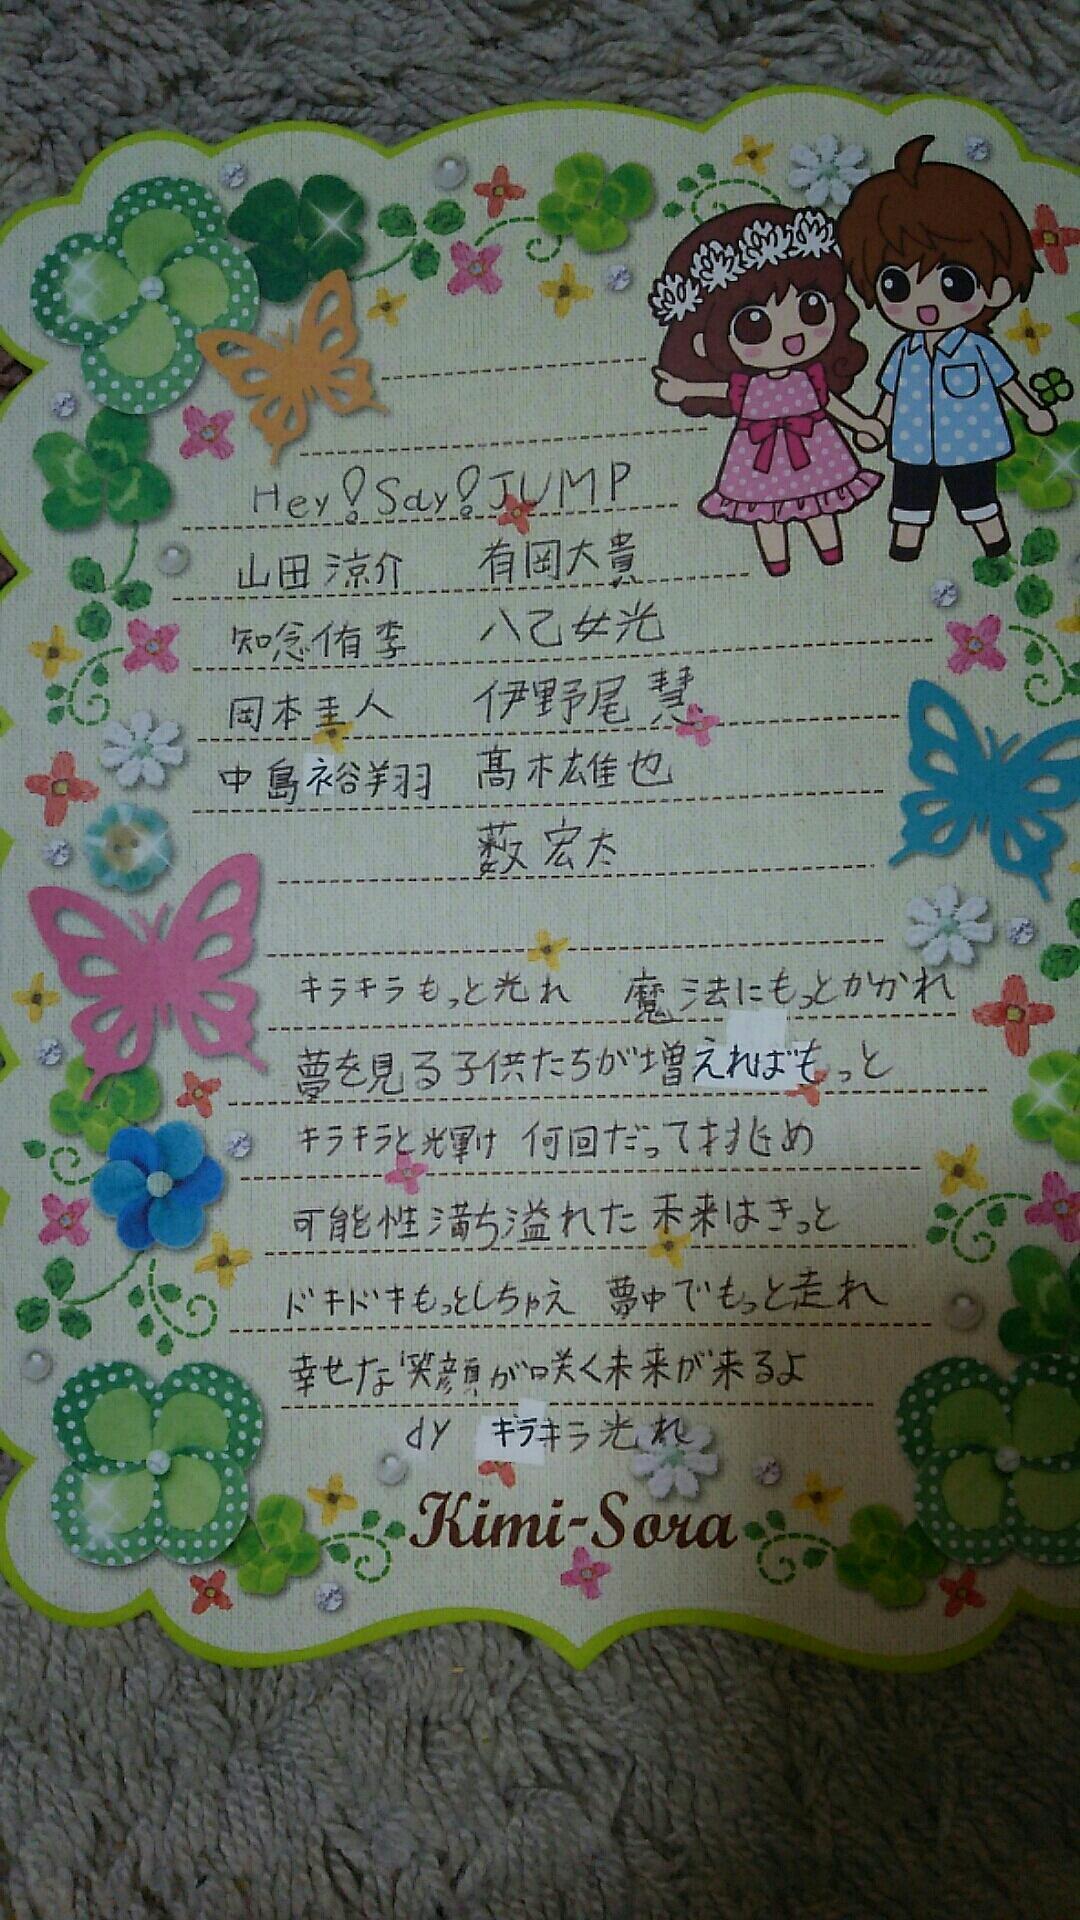 Hey!Say!JUMP
山田涼介 有岡大貴
知念侑李 八乙女光
岡本圭人 伊野尾慧
中島裕翔 髙木雄也
薮宏太
キラキラもっと光れ 魔法にもっとかかれ
夢を見る子供たちが増えればもっと
キラキラと光輝け 何回だって挑め
可能性満ち溢れた未来はきっと
ドキドキもっとしちゃえ 夢中でもっと走れ
幸せな笑顔が咲く未来が来るよ
dy キラキラ光れ
Kimi-Sora